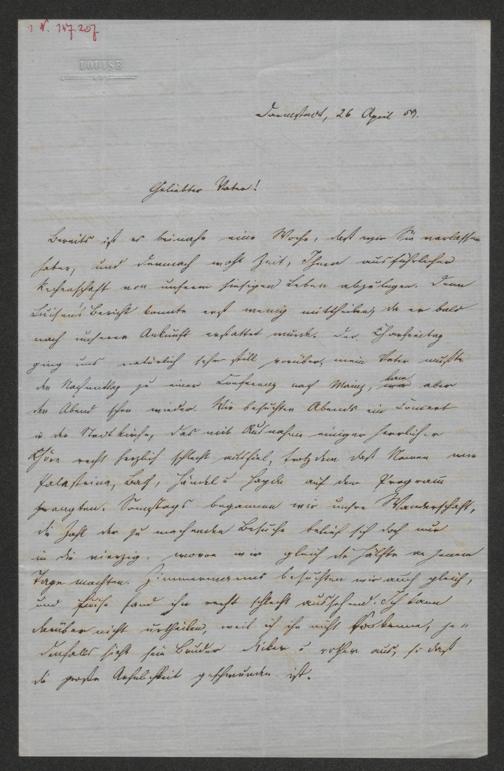 I N. 157.207
LOUISE
Darmstadt, 26 April 59.
Geliebter Vater!
Bereits ist es beinahe eine Woche, daß wir Sie verlassen
haben, und demnach wohl Zeit, Ihnen ausführlichen
Rechenschaft von unserem hiesigen Leben abzulegen. Denn
Bericht konnte erst wenig mittheilen, da er bald
nach unserer Ankunft erstattet wurde. Der Charfreitag
ging uns natürlich sehr still vorüber, mein Vater mußte
den Nachmittag zu einer Conferenz nach Mainz, kam aber
den Abend schon wieder. Wir besuchten Abends ein Concert
in der Stadtkirche, das mit Ausnahme einiger herrlicher
Chöre recht herzlich schlecht ausfiel, trotzdem daß Namen wie
Palästrina, Bach, Händel u Haydn auf dem Programm
prangten. Samstags begannen wir unsre Wanderschaft,
die Zahl der zu machenden Besuche belief sich doch nur
in die vierzig, wovon wir gleich die Hälfte an jenem
Tage machten. Zimmermanns besuchten wir auch gleich,
und Louise fand ihn recht schlecht aussehend. Ich kann
darüber nicht urtheilen, weil ich ihn nicht kenne, je
denfalls sieht sein Bruder dicker u rother aus, so daß
die große Aehnlichkeit geschwunden ist.